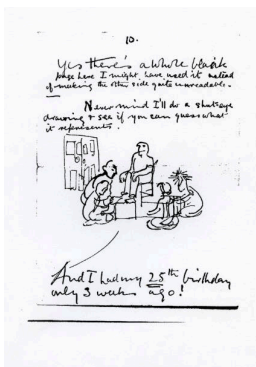 10.
Yes there's a whole blank
page here I might have used it instead
of making the other side quite unreadable.
Never mind I'll do a shut eye
drawing & see if you can guess what
it represents.
And I had my 25th birthday
only 3 weeks ago!